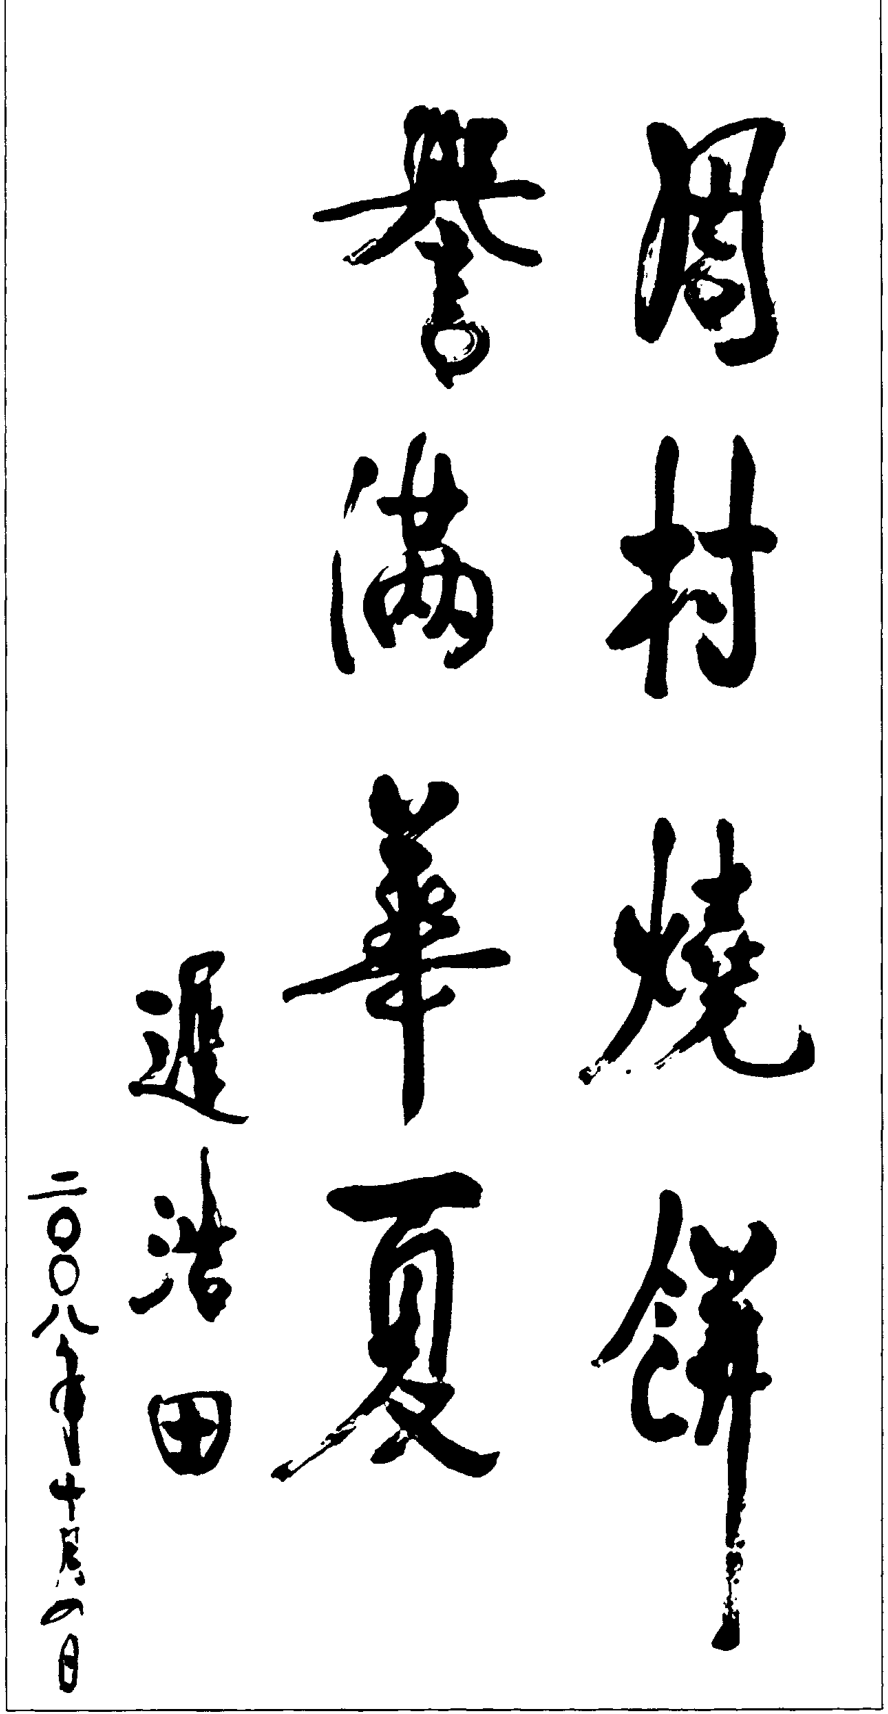 周村燒餅
譽满華夏
遲浩田
二〇〇八年十月八日